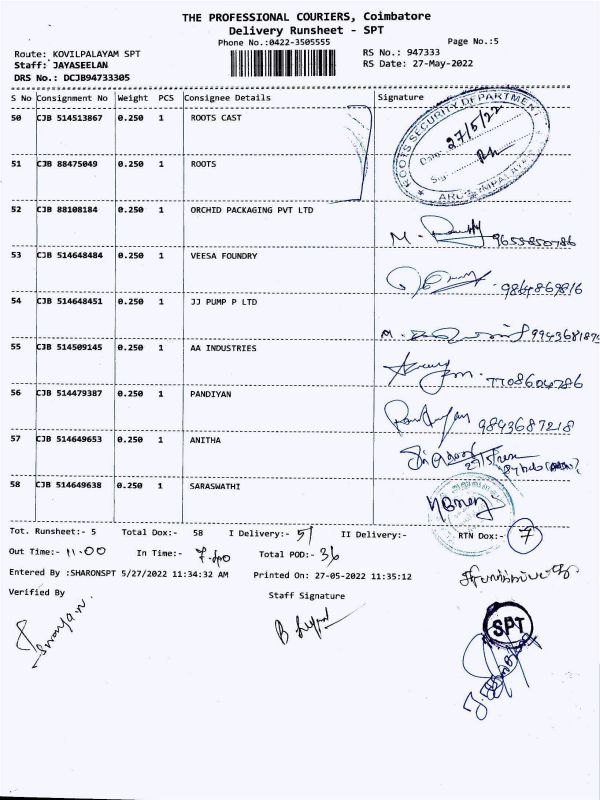 THE PROFESSIONAL COURIERS, Coimbatore
Delivery Runsheet - SPT
Phone No.:0422-3505555
Page No.:5
Route: KOVILPALAYAM SPT
RS No.: 947333
Staff: JAYASEELAN
RS Date: 27-May-2022
DRS No.: DCJB94733305
S No Consignment No Weight PCS Consignee Details Signature
50 CJB 514513867 0.250 1 ROOTS CAST
ROOTS SECURITY DEPARTMENT
Date: 27/5/22
Sig:
51 CJB 88475049 0.250 1 ROOTS
52 CJB 88108184 0.250 1 ORCHID PACKAGING PVT LTD
53 CJB 514648484 0.250 1 VEESA FOUNDRY
9864869816
54 CJB 514648451 0.250 1 JJ PUMP P LTD
55 CJB 514509145 0.250 1 AA INDUSTRIES
7708604786
56 CJB 514479387 0.250 1 PANDIYAN
9843687218
57 CJB 514649653 0.250 1 ANITHA
58 CJB 514649638 0.250 1 SARASWATHI
Tot. Runsheet:- 5 Total Dox:- 58 I Delivery:- 51 II Delivery:- RTN Dox:- 7
Out Time:- 11.00 In Time:- Total POD:- 36
Entered By :SHARONSPT 5/27/2022 11:34:32 AM Printed On: 27-05-2022 11:35:12
Verified By Staff Signature
SPT